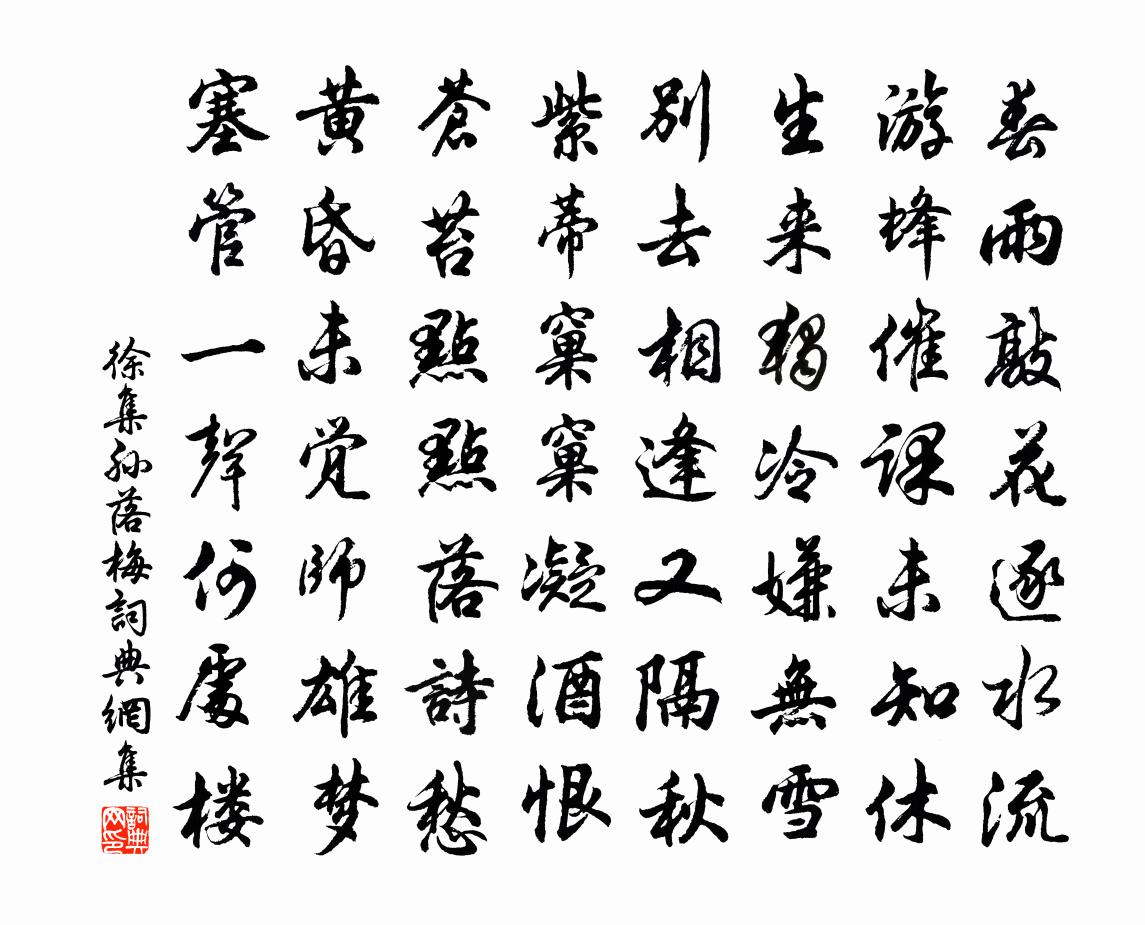 春雨敲花逐水流
游蜂催课未知休
生来独冷嫌無雪
别去相逢又隔秋
紫蒂窠窠凝酒恨
蒼苔點點落詩愁
黄昏未觉師雄梦
塞管一聲何處楼
徐集孙落梅詞典網集
詞典网印